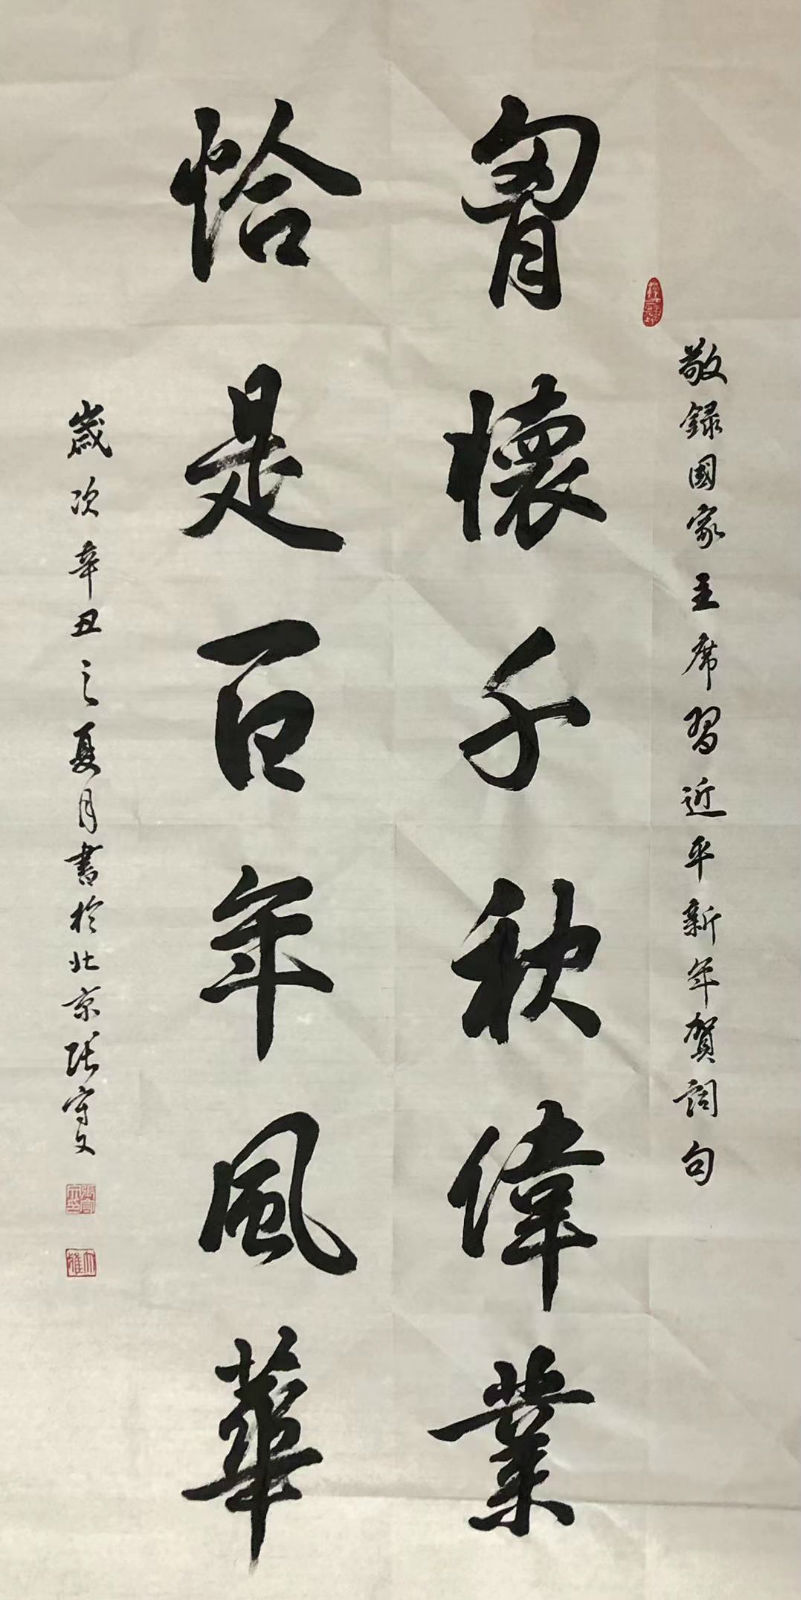 敬録國家主席習近平新年賀詞句
胷懷千秋偉業
恰是百年風華
歲次辛丑之夏月書於北京張守文